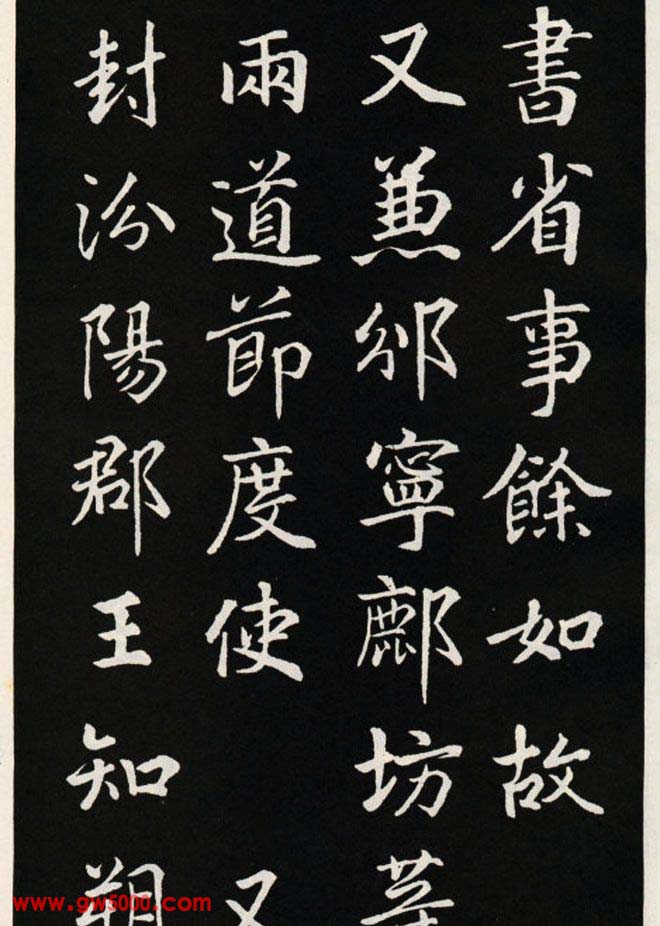 書省事餘如故
又兼邠寧鄜坊
兩道節度使 又
封汾陽郡王知朔
www.gw5000.com